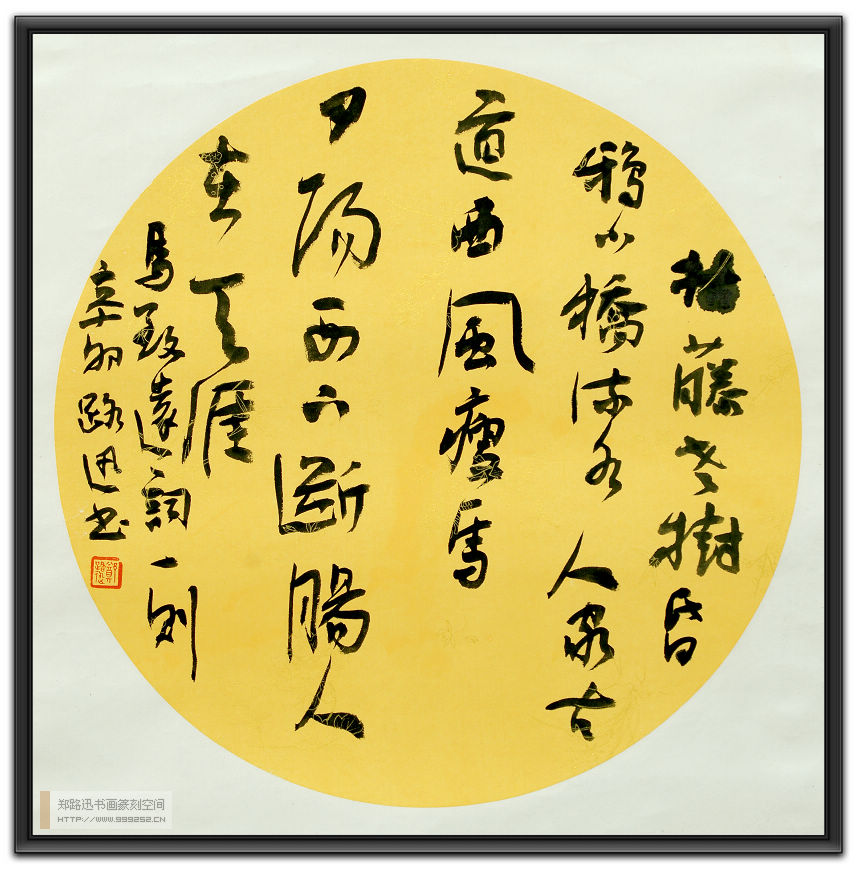 枯藤老樹昏
鴉小橋流水人家古
道西風瘦馬
夕陽西下斷腸人
在天涯
馬致遠詞一則
辛卯路迅書
郑路迅书画篆刻空间
HTTP://WWW.999252.CN